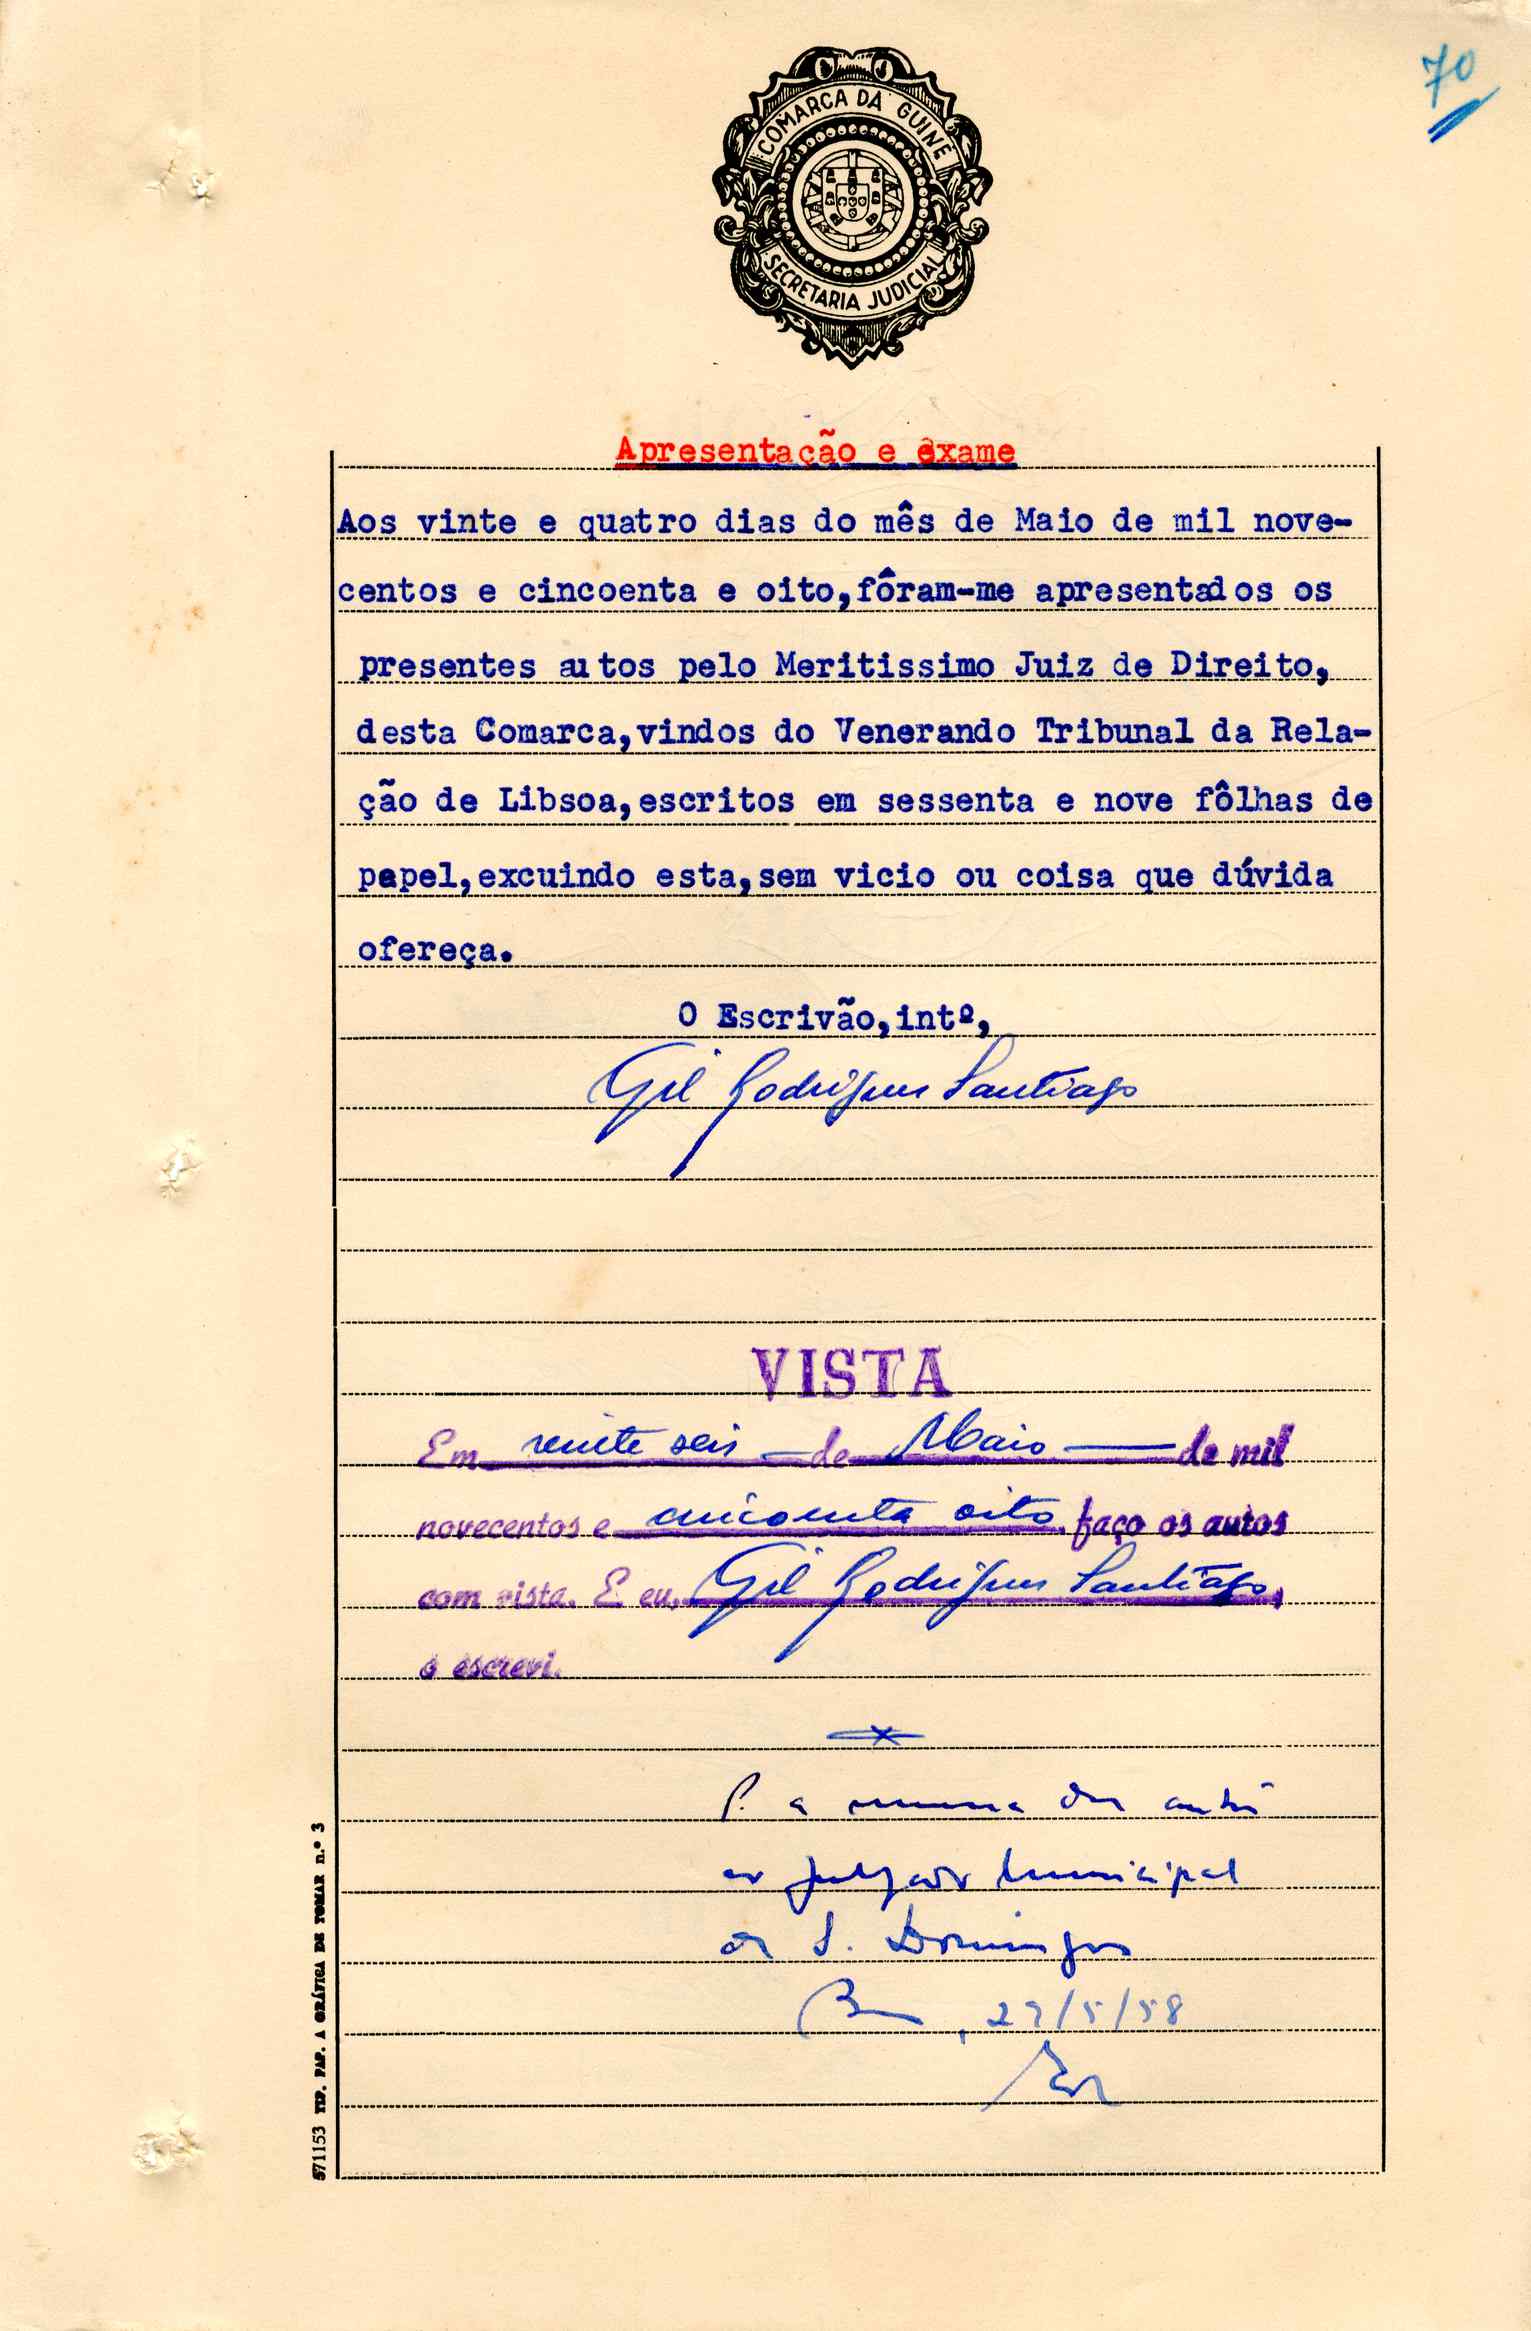 70
COMARCA DA GUINÉ
SECRETARIA JUDICIAL
Apresentação e exame
Aos vinte e quatro dias do mês de Maio de mil nove-
centos e cincoenta e oito,fôram-me apresentados os
presentes autos pelo Meritissimo Juiz de Direito,
desta Comarca,vindos do Venerando Tribunal da Rela-
ção de Libsoa,escritos em sessenta e nove fôlhas de
papel,excuindo esta,sem vicio ou coisa que dúvida
ofereça.
O Escrivão,intº,
Gil Rodrigues Santiago
VISTA
Em vinte seis — de Maio — de mil
novecentos e cincoenta oito, faço os autos
com vista. E eu, Gil Rodrigues Santiago,
o escrevi.
P. a remessa dos autos
ao Julgado Municipal
de S. Domingos
, 27/5/58
571153 TIP. PAP. A GRÁFICA DE TOMAR n.º 3